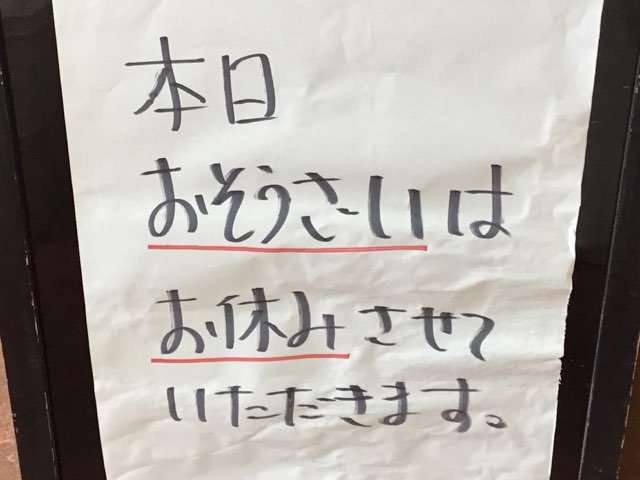 本日
おそうさいは
お休みさせて
いただきます。